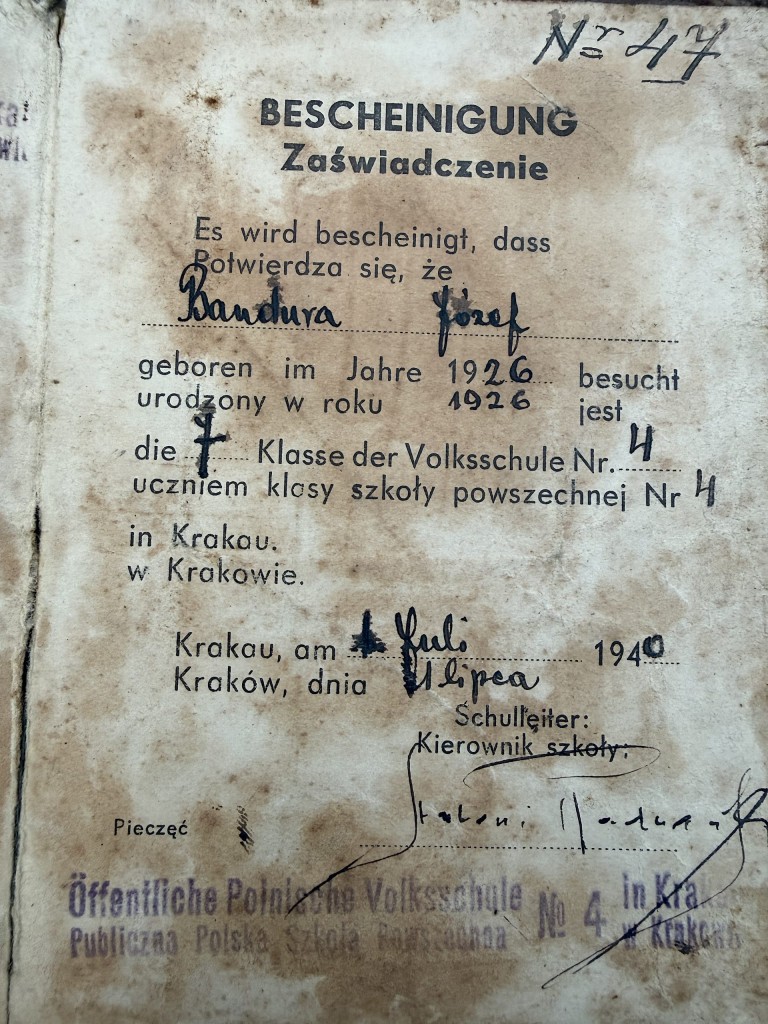 Nr 47
BESCHEINIGUNG
Zaświadczenie
Es wird bescheinigt, dass
Potwierdza się, że
Bandura Józef
geboren im Jahre 1926 besucht
urodzony w roku 1926 jest
die 7 Klasse der Volksschule Nr. 4
uczniem klasy szkoły powszechnej Nr 4
in Krakau.
w Krakowie.
Krakau, am 1 Juli 1940
Kraków, dnia 1 lipca
Schulleiter:
Kierownik szkoły:
Pieczęć
Öffentliche Polnische Volksschule № 4 in
Publiczna Polska Szkoła Powszechna w